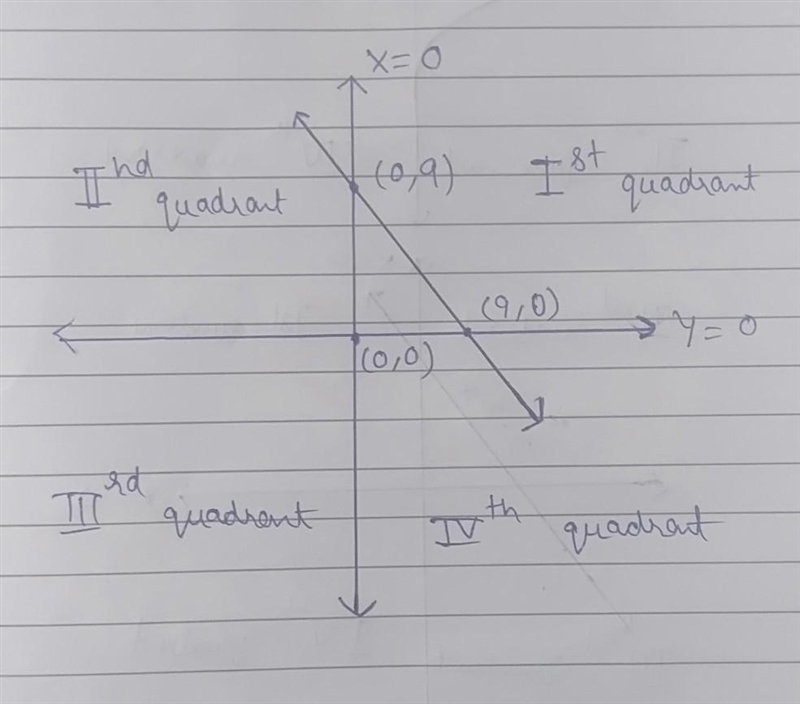 X=0
II nd quadrant
(0,9)
I st quadrant
(9,0)
Y=0
(0,0)
III rd quadrant
IV th quadrant